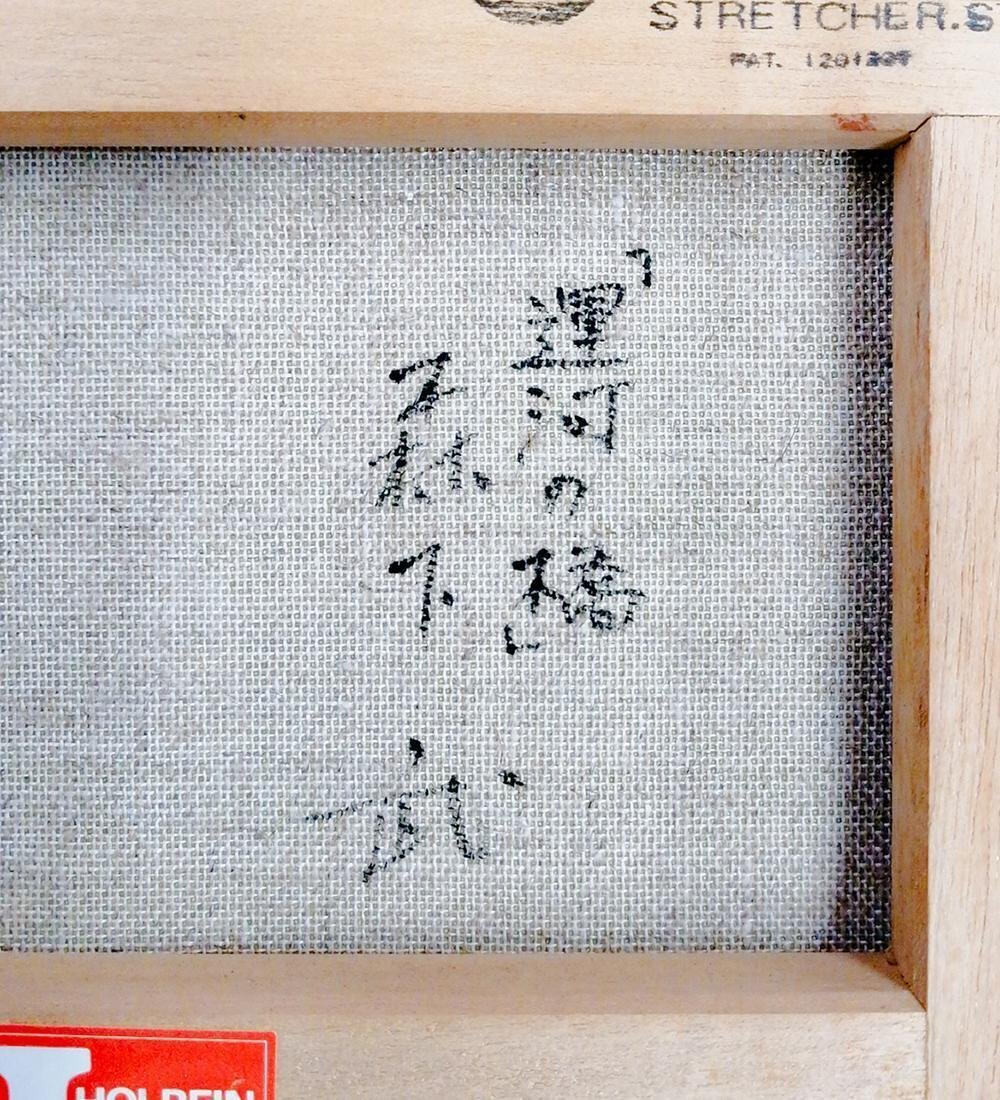 STRETCHER.ST
PAT.
「運河の橋」
森下
HOLBEIN